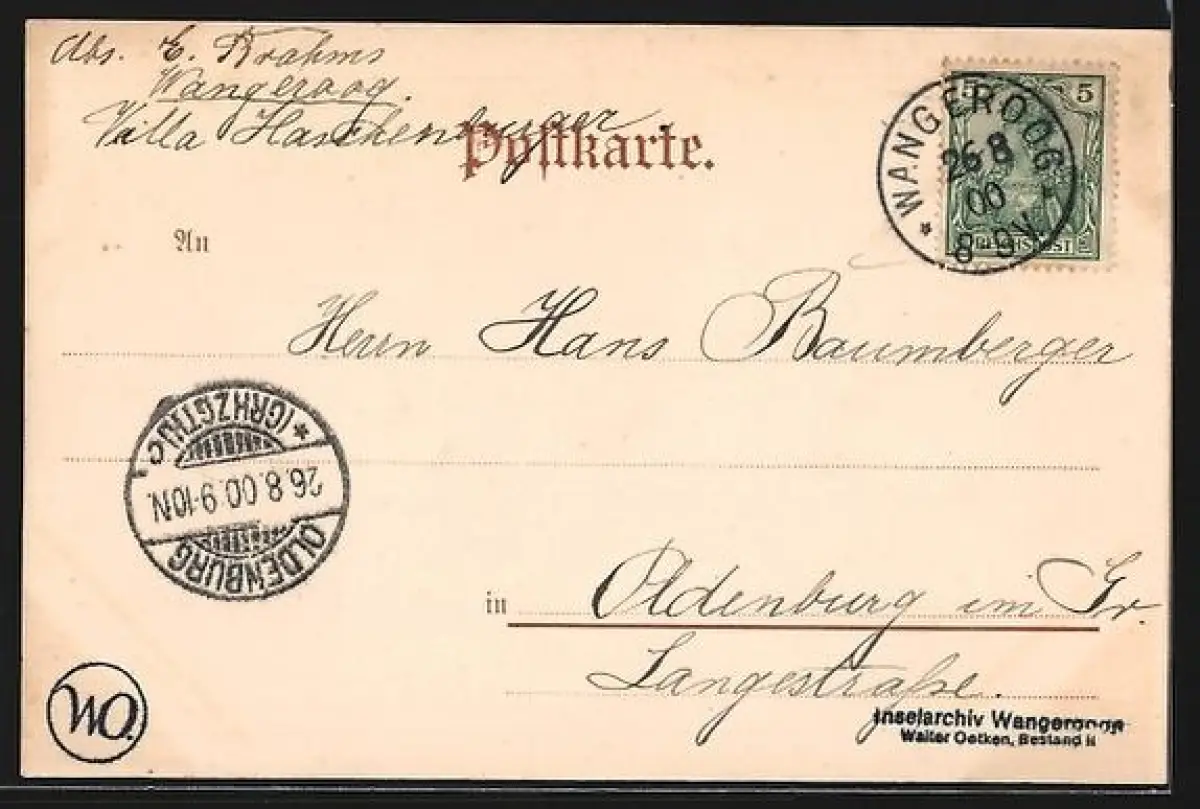 Abs. E. Brahms
Wangeroog.
Villa Haschenburger
Postkarte.
5 5
REICHSPOST
* WANGEROOG *
26 8
00
8-9V
An
Herrn Hans Baumberger
OLDENBURG
26.8.00.9-10N.
* (GRHZGTH.) c
in Oldenburg im Gr.
Langestraße.
WO.
Inselarchiv Wangerooge
Walter Oetken, Bestand II